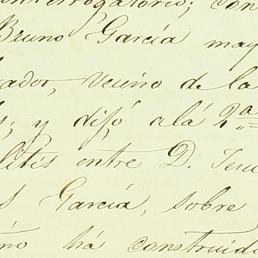 interrogatorio; con
Bruno García may
ador, vecino de la
s; y dijó a lá 2ª
litis entre D.
s García, sobre
no há construido